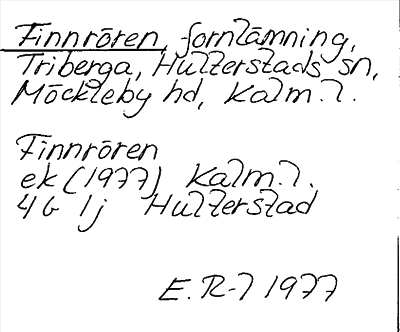 Finnrören, fornlämning,
Triberga, Hulterstads sn,
Möckleby hd, Kalm. l.
Finnrören
ek (1977) Kalm. l.
4G 1j Hulterstad
E. R-l 1977